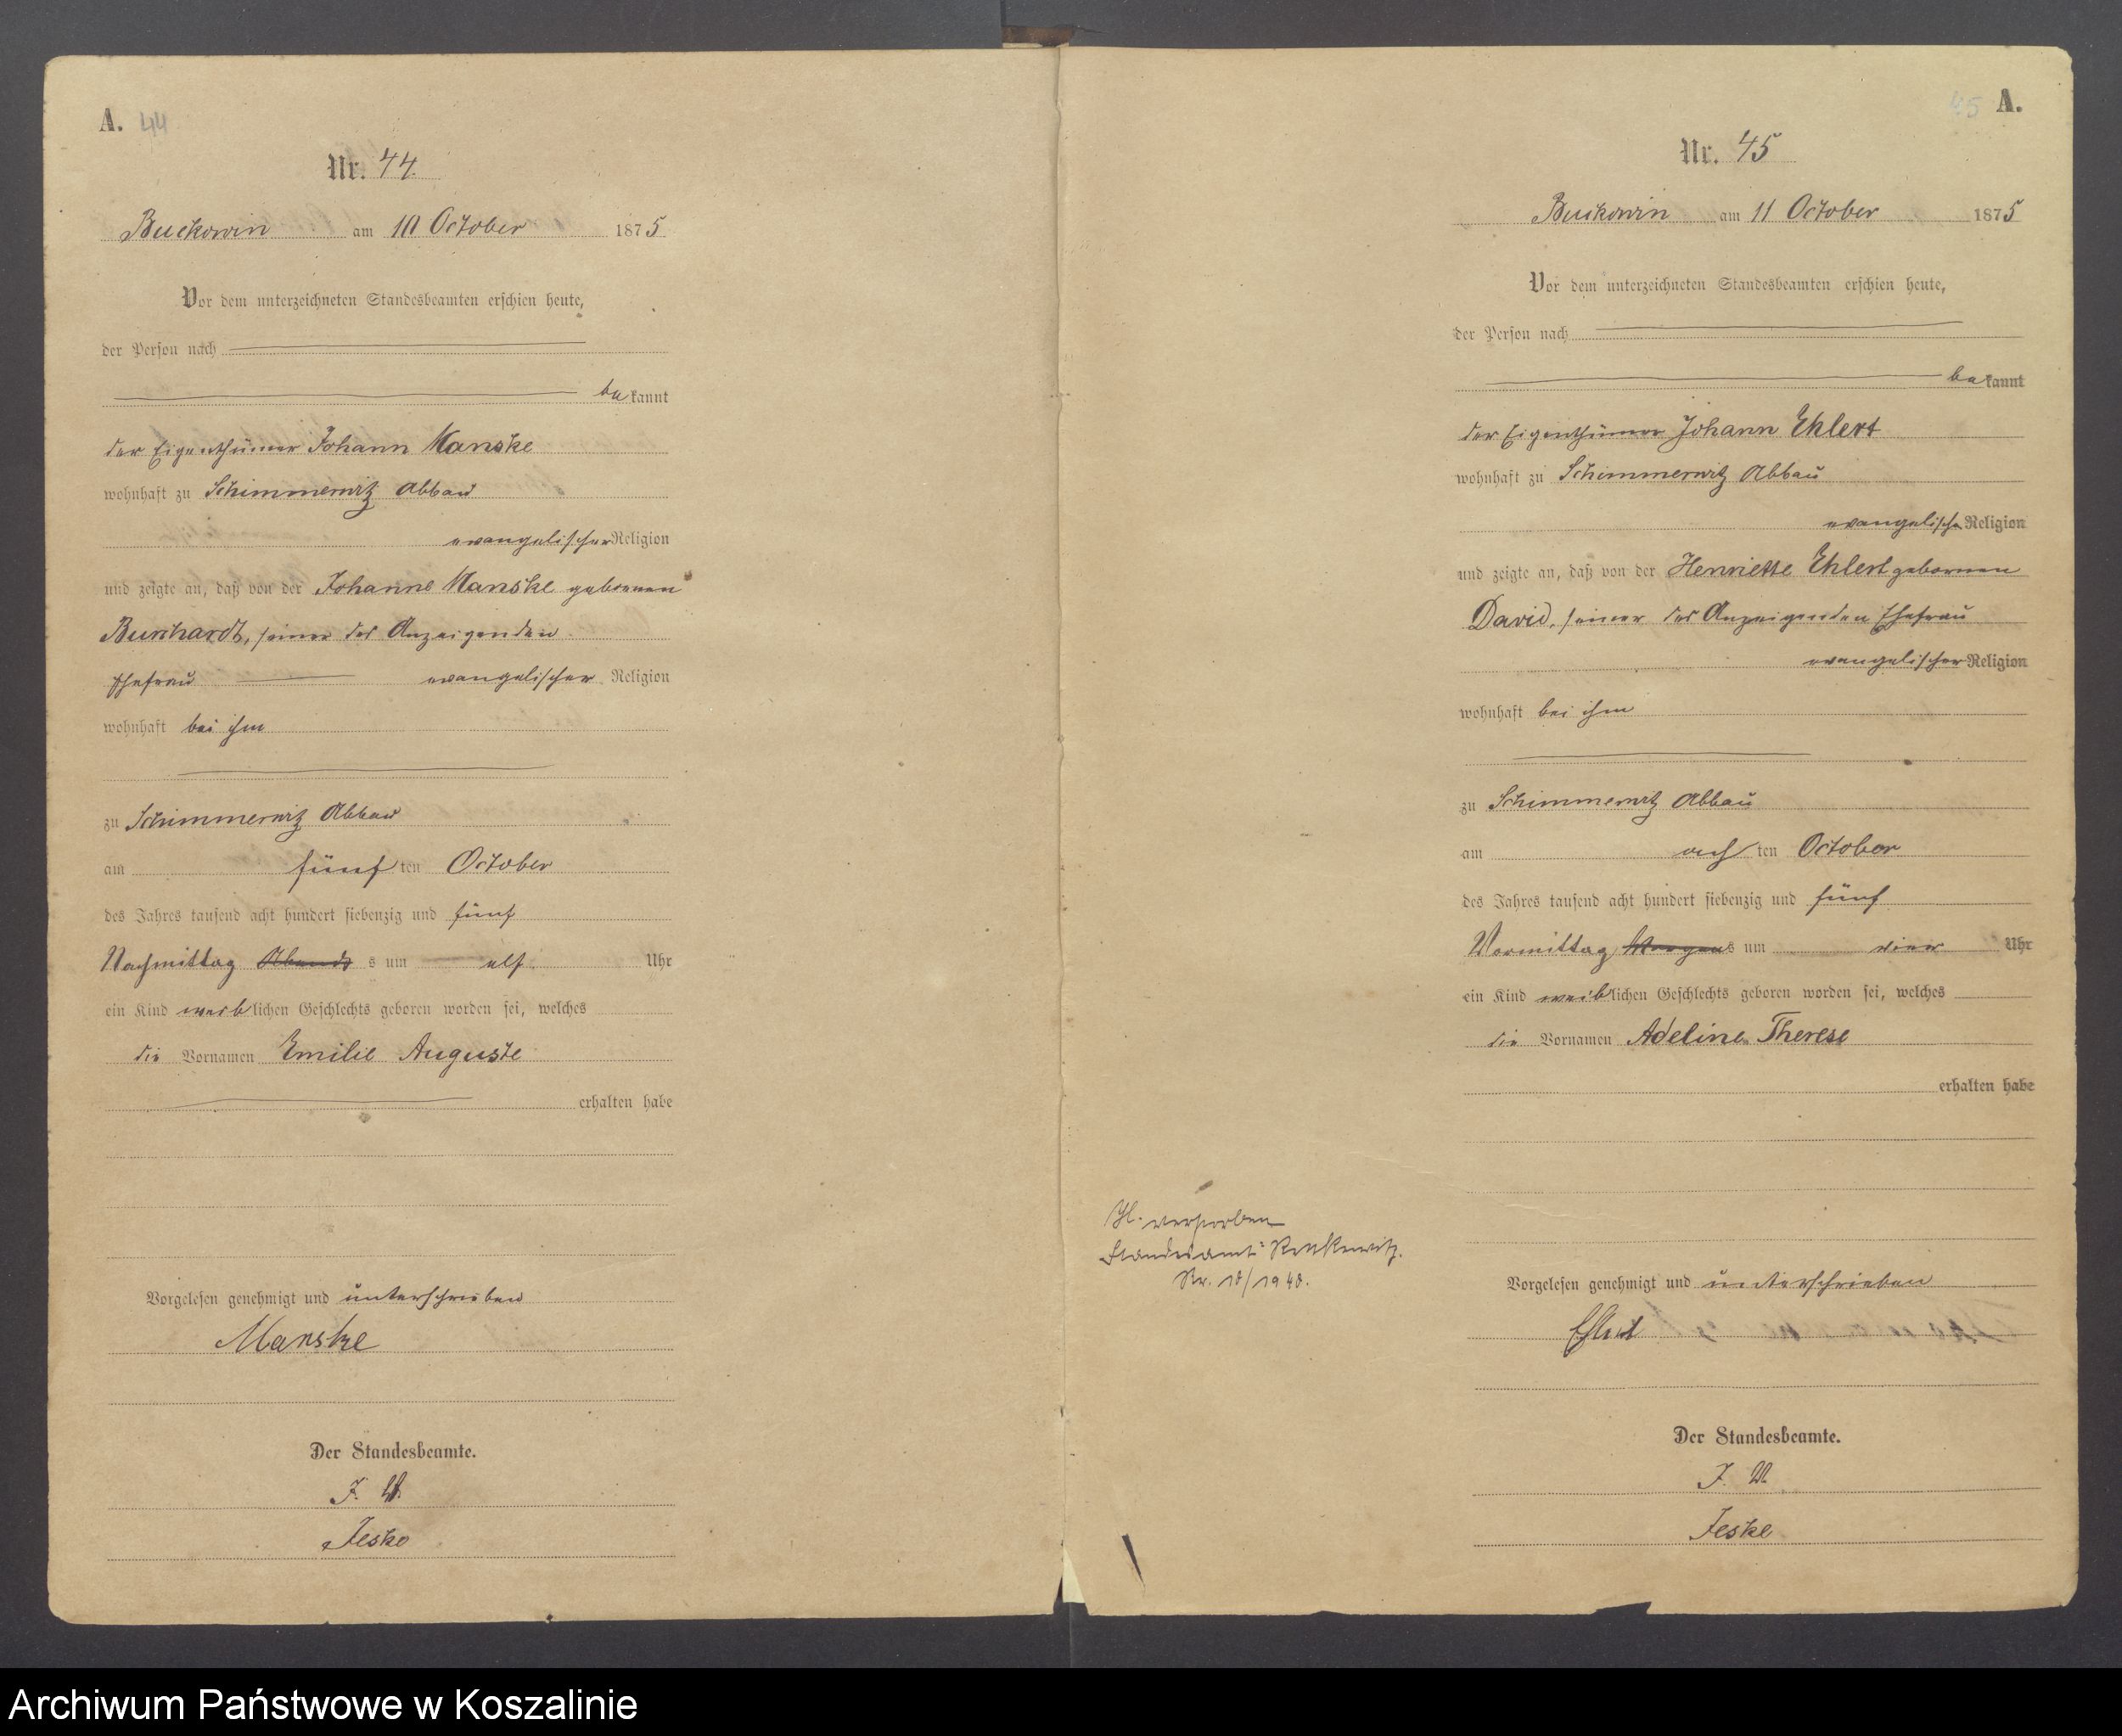 A. 44
Nr. 44.
Buckowin am 10 October 1875
Vor dem unterzeichneten Standesbeamten erschien heute,
der Person nach
bekannt
der Eigenthümer Johann Manske
wohnhaft zu Schimmerwitz Abbau
evangelischer Religion
und zeigte an, daß von der Johanne Manske geborenen
Burchardt, seiner des Anzeigenden
Ehefrau evangelischer Religion
wohnhaft bei ihm
zu Schimmerwitz Abbau
am fünften October
des Jahres tausend acht hundert siebenzig und fünf
Nachmittag Abends s um elf Uhr
ein Kind weiblichen Geschlechts geboren worden sei, welches
die Vornamen Emilie Auguste
erhalten habe
Vorgelesen genehmigt und unterschrieben
Manske
Der Standesbeamte.
J. V.
Jeske
45 A.
Nr. 45
Buckowin am 11 October 1875
Vor dem unterzeichneten Standesbeamten erschien heute,
der Person nach
bekannt
der Eigenthümer Johann Ehlert
wohnhaft zu Schimmerwitz Abbau
evangelischer Religion
und zeigte an, daß von der Henriette Ehlert gebornen
David, seiner des Anzeigenden Ehefrau
evangelischer Religion
wohnhaft bei ihm
zu Schimmerwitz Abbau
am achten October
des Jahres tausend acht hundert siebenzig und fünf
Vormittag Morgens um vier Uhr
ein Kind weiblichen Geschlechts geboren worden sei, welches
die Vornamen Adeline Therese
erhalten habe
verstorben
Standesamt
Nr. 18/1940.
Vorgelesen genehmigt und unterschrieben
Ehlert
Der Standesbeamte.
J. V.
Jeske
Archiwum Państwowe w Koszalinie